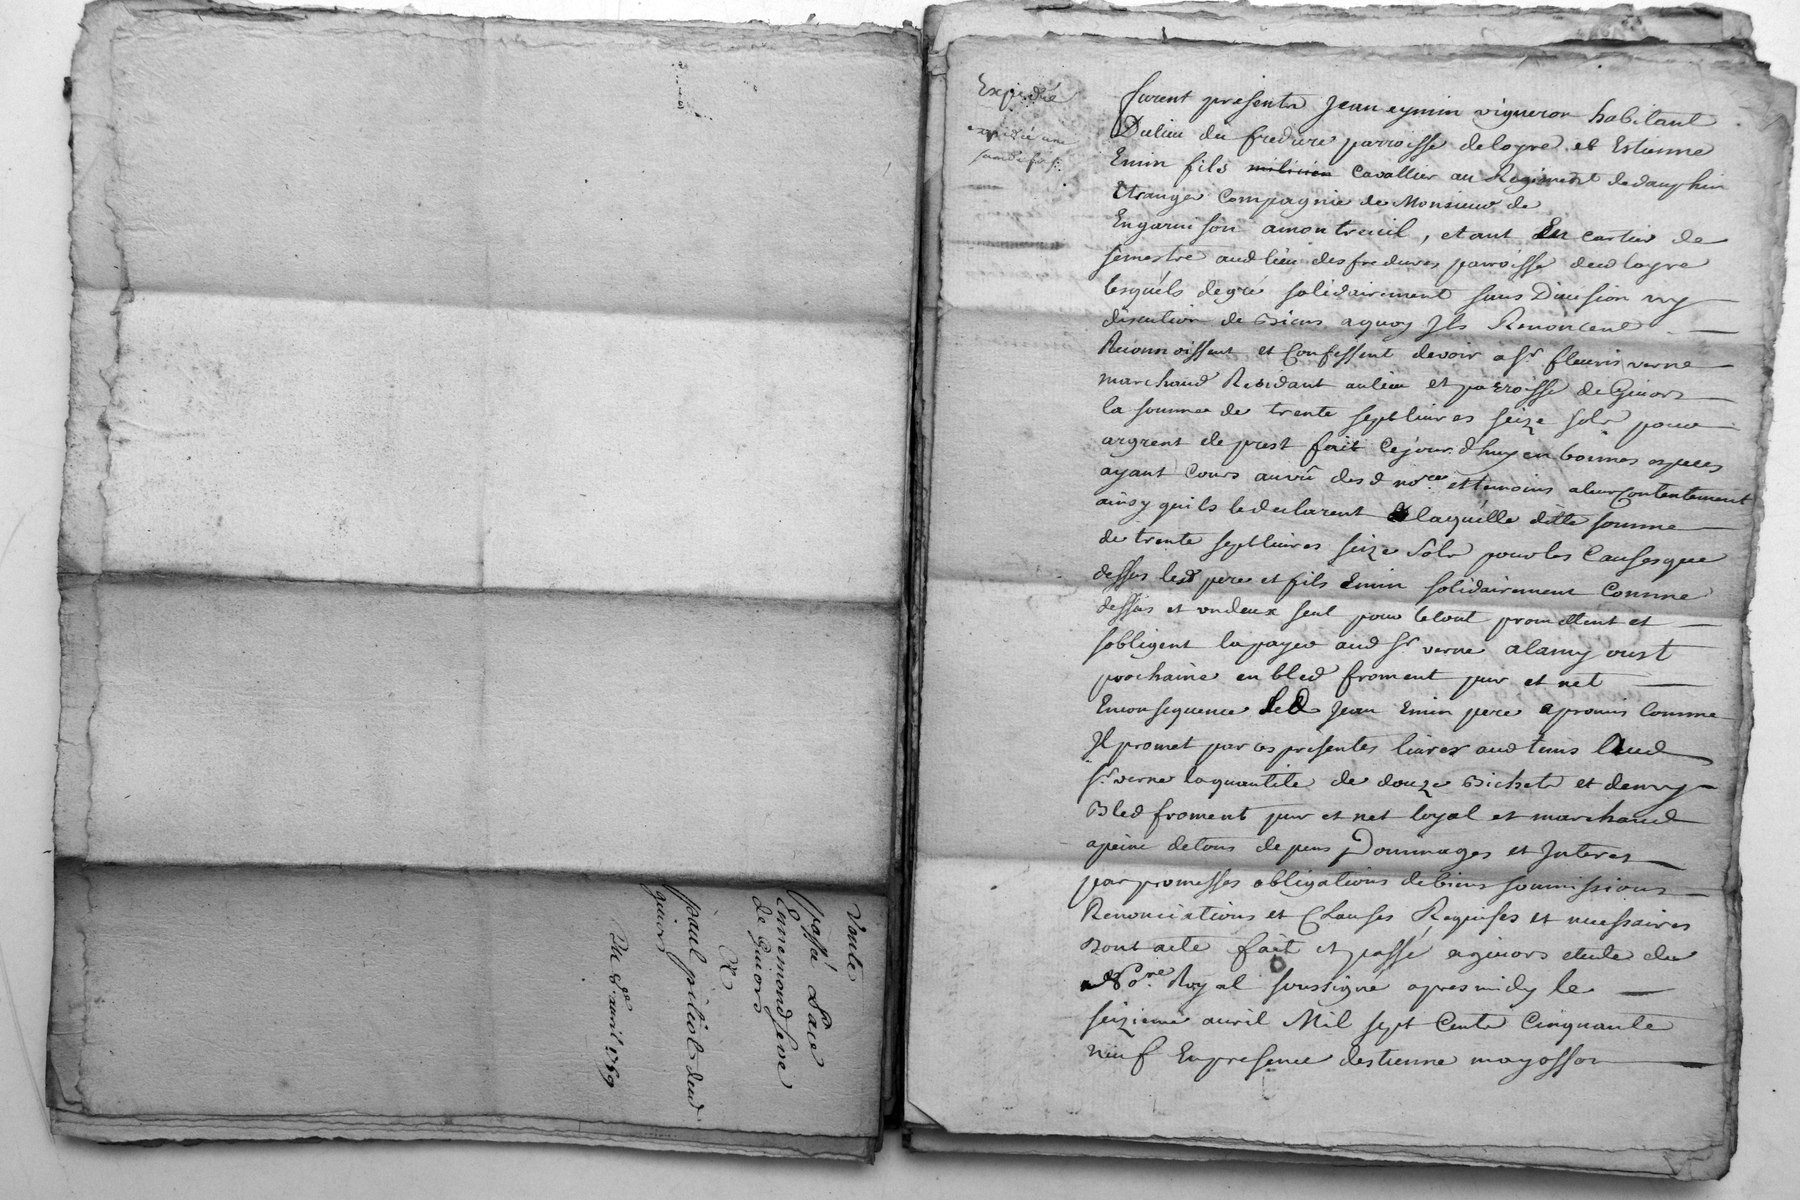 Vente
passé Lace
Ennemond seve
de Givors
A
paul piliol dud
givors
Du 8.e avril 1759
Expediée
expedié une
seconde fois
furent presents Jean eymin vigneron habitant
Dulieu du fredure parroisse deloyre et Estienne
Emin fils milicien Cavallier au Regiment dedauphin
Etranger Compagnie de Monsieur de
Engarnison amontreuil, etant En cartier de
semestre audlieu desfredures parroisse dudloyre
lesquels degré solidairement sans Division ny
discution de Biens aquoy Ils Renoncent
Reconnoissent et Confessent devoir a Sr. fleuris verne
marchand Residant aulieu et parroisse deGivors
la somme de trente septlivres seize sols pour
argrent de prest fait Cejour d'huy en bonnes especes
ayant Cours auvû desd nore. et temoins aleurcontentement
ainsy quils ledeclarent laquelle ditte somme
de trente septlivres seize Sols pourles Causesque
dessus lesd pere et fils Emin solidairement Comme
dessus et undeux seul pour letout promettent et
sobligent lapayer aud Sr. verne alamy oust
prochaine en bled froment pur et net
Enconsequence led Jean Emin pere apromis Comme
Il promet par ces presentes livrer aud tems aud
Sr. verne laquantite de douze Bichets et demy
Bled froment pur et net loyal et marchand
apeine detous depens Dommages et Interes
par promesses obligations debiens soumissions
Renonciations et Clauses Requises et necessaires
Dont acte fait et passé agivors etude du
Nore. Royal soussigne apresmidy le
seizieme avril Mil sept Cents Cinquante
neuf Enpresence destienne mayosson